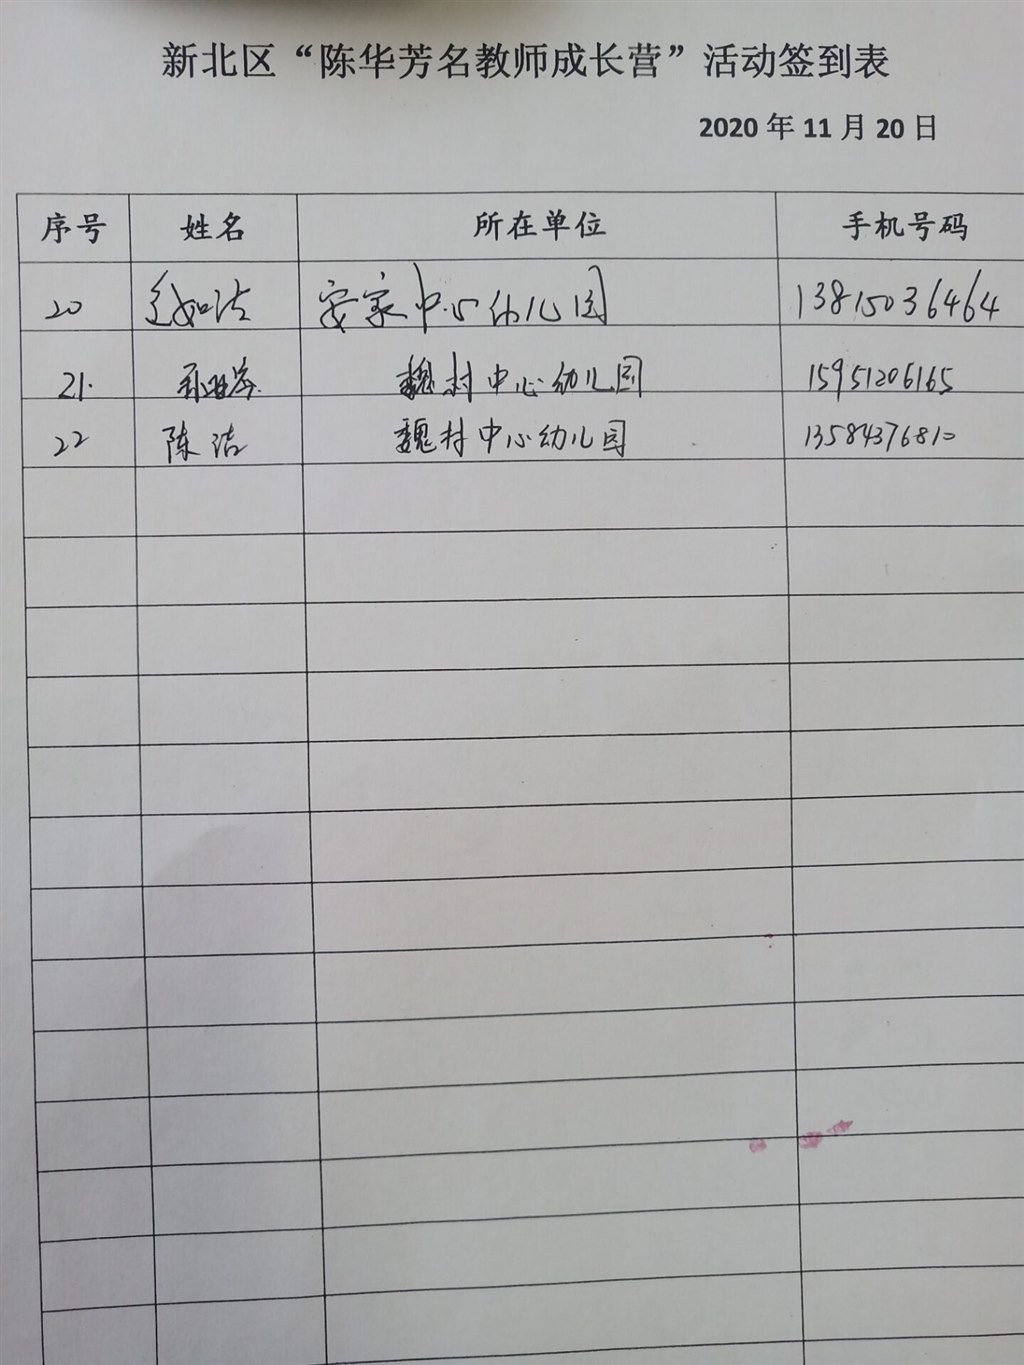 新北区“陈华芳名教师成长营”活动签到表
2020 年 11 月 20 日
序号 姓名 所在单位 手机号码
20 安家中心幼儿园 13815036464
21. 魏村中心幼儿园 15951206165
22 陈洁 魏村中心幼儿园 13584376810